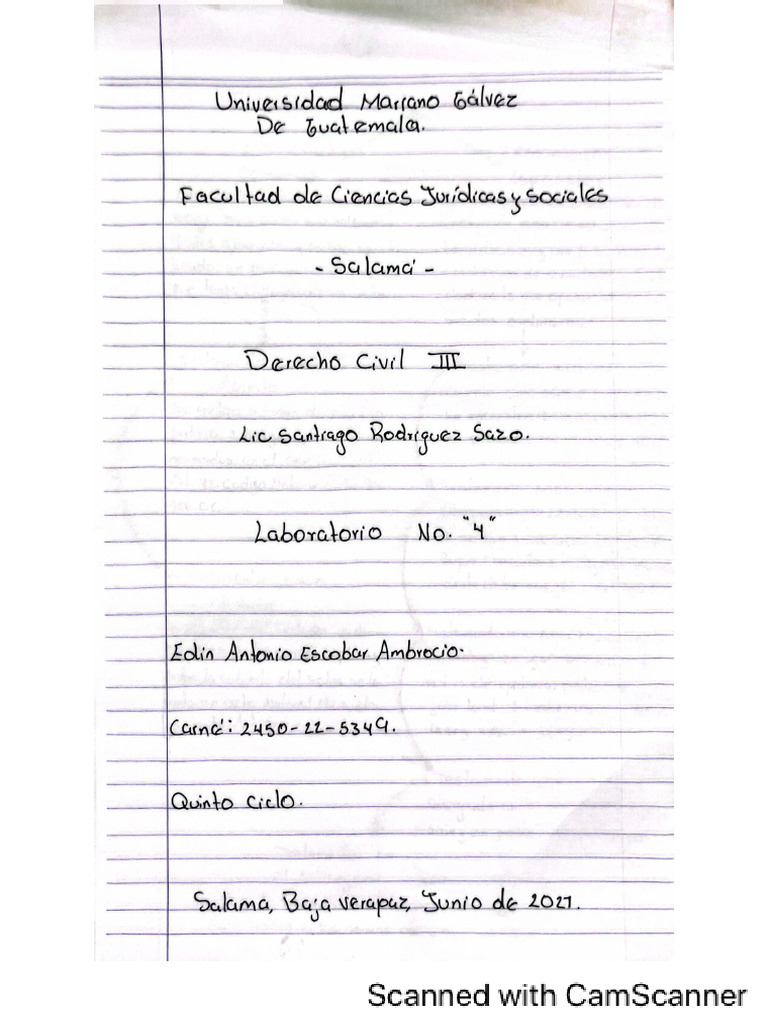 Universidad Mariano Gálvez
De Guatemala.
Facultad de Ciencias Jurídicas y Sociales
- Salamá -
Derecho Civil III
Lic Santiago Rodríguez Sazo.
Laboratorio No. "4"
Edin Antonio Escobar Ambrocio.
Carné: 2450-22-5349.
Quinto Ciclo.
Salama, Baja Verapaz, Junio de 2021.
Scanned with CamScanner